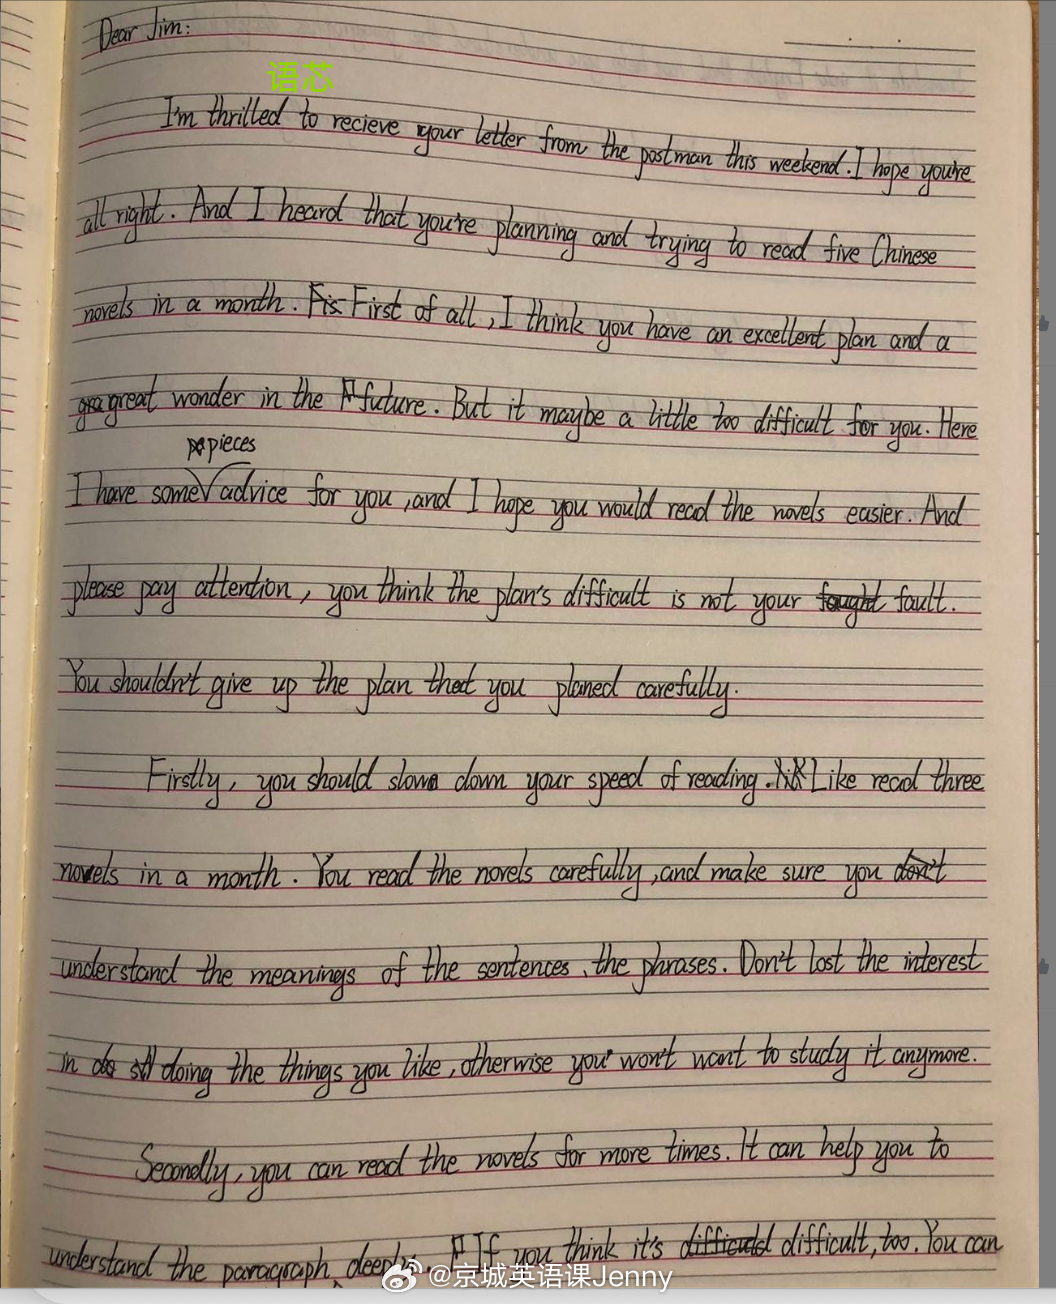 Dear Jim:
语芯
I'm thrilled to recieve your letter from the postman this weekend. I hope you're
all right. And I heard that you're planning and trying to read five Chinese
novels in a month. Fis First of all, I think you have an excellent plan and a
great wonder in the future. But it maybe a little too difficult for you. Here
pieces
I have some√advice for you, and I hope you would read the novels easier. And
please pay attention, you think the plan's difficult is not your fought fault.
You shouldn't give up the plan that you planed carefully.
Firstly, you should slow down your speed of reading. Like read three
novels in a month. You read the novels carefully, and make sure you don't
understand the meanings of the sentences、the phrases. Don't lost the interest
in do doing the things you like, otherwise you won't want to study it anymore.
Secondly, you can read the novels for more times. It can help you to
understand the paragraph If you think it's difficuld difficult, too. You can
@京城英语课Jenny